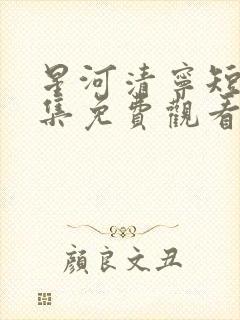 星河清寧短
集免費觀看
顏良文丑